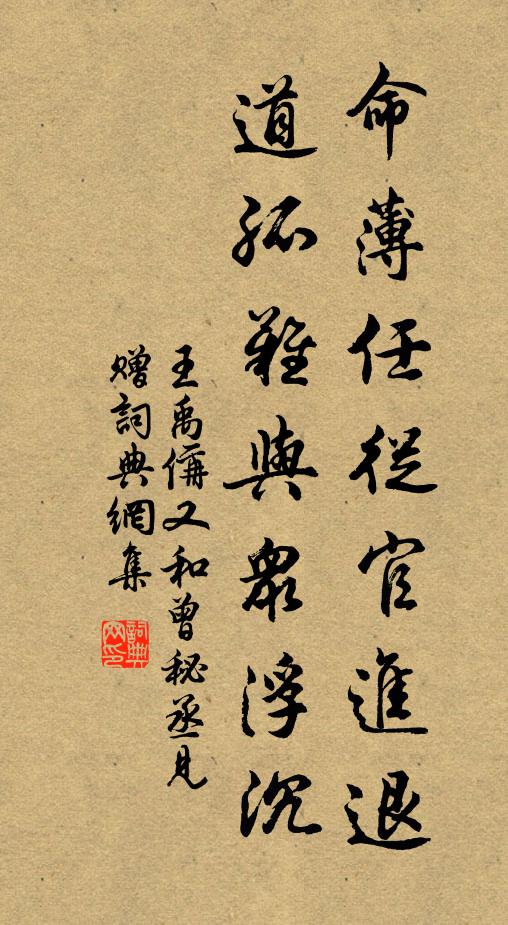 命薄任從官進退
道孤難與衆浮沉
王禹偁又和曾秘丞見
贈詞典網集
詞典
网印